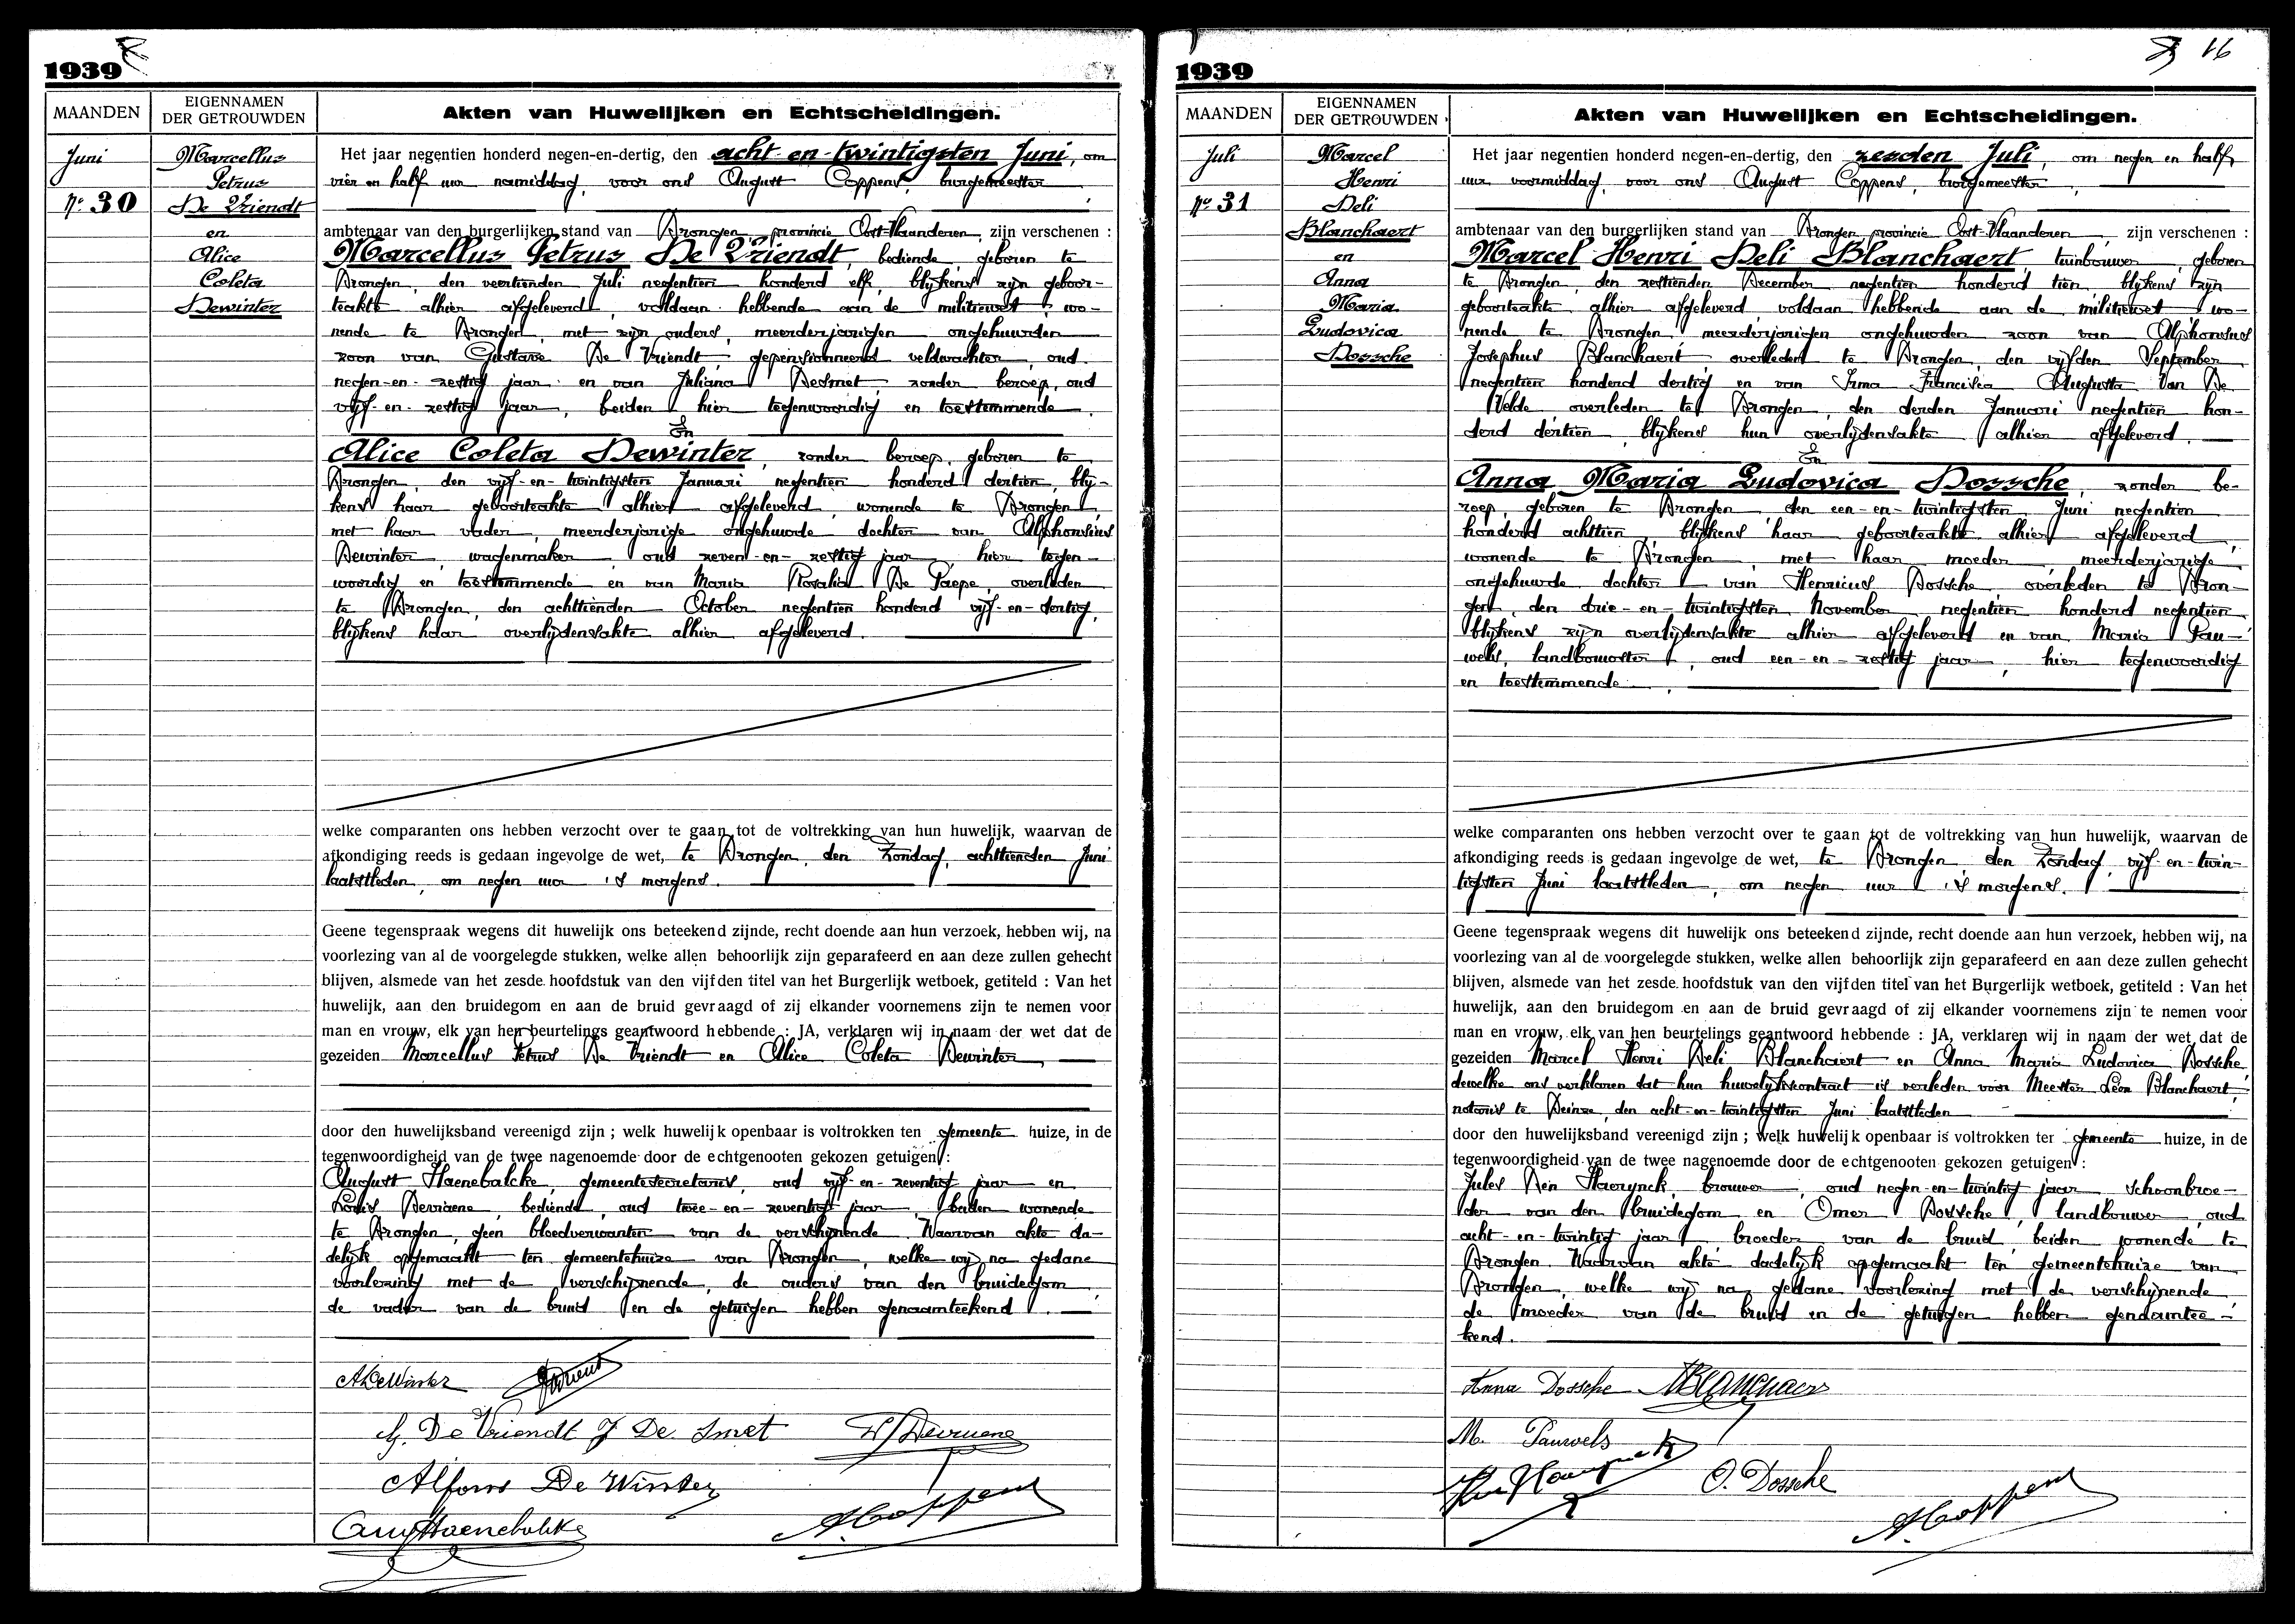 1939
MAANDEN
EIGENNAMEN
DER GETROUWDEN
Akten van Huwelijken en Echtscheidingen.
Juni
No 30
Marcellus
Petrus
De Vriendt
en
Alice
Coleta
Dewinter
Het jaar negentien honderd negen-en-dertig, den acht-en-twintigsten Juni, om
vier en half uur namiddag, voor ons August Coppens, burgemeester
ambtenaar van den burgerlijken stand van Drongen, provincie Oost-Vlaanderen, zijn verschenen :
Marcellus Petrus De Vriendt, bediende, geboren te
Drongen, den veertienden Juli negentien honderd elf, blijkens zijn geboor-
teakte alhier afgeleverd, voldaan hebbende aan de militiewet, wo-
nende te Drongen, met zijn ouders, meerderjarigen ongehuwden
zoon van Gustave De Vriendt, gepensionneerd veldwachter, oud
negen-en-zestig jaar en van Juliana Desmet, zonder beroep, oud
vijf-en-zestig jaar, beiden hier tegenwoordig en toestemmende.
En
Alice Coleta Dewinter, zonder beroep, geboren te
Drongen, den vijf-en-twintigsten Januari negentien honderd dertien, blij-
kens haar geboorteakte alhier afgeleverd, wonende te Drongen,
met haar vader, meerderjarige ongehuwde dochter van Alphonsius
Dewinter, wagenmaker, oud zeven-en-zestig jaar, hier tegen-
woordig en toestemmende en van Maria Rosalia De Paepe, overleden
te Drongen, den achttienden October negentien honderd vijf-en-dertig,
blijkens haar overlijdensakte alhier afgeleverd.
welke comparanten ons hebben verzocht over te gaan tot de voltrekking van hun huwelijk, waarvan de
afkondiging reeds is gedaan ingevolge de wet, te Drongen, den Zondag, achttienden Juni
laatstleden, om negen uur 's morgens.
Geene tegenspraak wegens dit huwelijk ons beteekend zijnde, recht doende aan hun verzoek, hebben wij, na
voorlezing van al de voorgelegde stukken, welke allen behoorlijk zijn geparafeerd en aan deze zullen gehecht
blijven, alsmede van het zesde hoofdstuk van den vijfden titel van het Burgerlijk wetboek, getiteld : Van het
huwelijk, aan den bruidegom en aan de bruid gevraagd of zij elkander voornemens zijn te nemen voor
man en vrouw, elk van hen beurtelings geantwoord hebbende : JA, verklaren wij in naam der wet dat de
gezeiden Marcellus Petrus De Vriendt en Alice Coleta Dewinter
door den huwelijksband vereenigd zijn ; welk huwelijk openbaar is voltrokken ten gemeente huize, in de
tegenwoordigheid van de twee nagenoemde door de echtgenooten gekozen getuigen :
August Haenebalcke, gemeentesecretaris, oud vijf-en-zeventig jaar en
Louis Devriene, bediende, oud twee-en-zeventig jaar, beiden wonende
te Drongen, geen bloedverwanten van de verschijnende. Waarvan akte da-
delijk opgemaakt ten gemeentehuize van Drongen, welke wij na gedane
voorlezing met de verschijnende, de ouders van den bruidegom
de vader van de bruid en de getuigen hebben genaamteekend.
A DeWinter
G. De Vriendt J De Smet
Alfons De Winter
Aug Haenebalcke
A Coppens
1939
16
MAANDEN
EIGENNAMEN
DER GETROUWDEN
Akten van Huwelijken en Echtscheidingen.
Juli
No 31
Marcel
Henri
Deli
Blanchaert
en
Anna
Maria
Ludovica
Dossche
Het jaar negentien honderd negen-en-dertig, den zesden Juli, om negen en half
uur voormiddag, voor ons August Coppens, burgemeester,
ambtenaar van den burgerlijken stand van Drongen, provincie Oost-Vlaanderen, zijn verschenen :
Marcel Henri Deli Blanchaert, tuinbouwer, geboren
te Drongen, den zestienden December negentien honderd tien, blijkens zijn
geboorteakte alhier afgeleverd voldaan hebbende aan de militiewet, wo-
nende te Drongen, meerderjarigen ongehuwden zoon van Alphonsius
Josephus Blanchaert overleden te Drongen, den vijfden September
negentien honderd dertig en van Irma Francisca Augusta Van De
Velde overleden te Drongen, den derden Januari negentien hon-
derd dertien, blijkens hun overlijdensakte alhier afgeleverd.
En
Anna Maria Ludovica Dossche, zonder be-
roep, geboren te Drongen, den een-en-twintigsten Juni negentien
honderd achttien blijkens haar geboorteakte alhier afgeleverd,
wonende te Drongen, met haar moeder, meerderjarige
ongehuwde dochter van Henricus Dossche overleden te Dron-
gen, den drie-en-twintigsten November negentien honderd negentien
blijkens zijn overlijdensakte alhier afgeleverd en van Maria Pau-
wels, landbouwster, oud een-en-zestig jaar, hier tegenwoordig
en toestemmende.
welke comparanten ons hebben verzocht over te gaan tot de voltrekking van hun huwelijk, waarvan de
afkondiging reeds is gedaan ingevolge de wet, te Drongen den Zondag, vijf-en-twin-
tigsten Juni laatstleden, om negen uur 's morgens.
Geene tegenspraak wegens dit huwelijk ons beteekend zijnde, recht doende aan hun verzoek, hebben wij, na
voorlezing van al de voorgelegde stukken, welke allen behoorlijk zijn geparafeerd en aan deze zullen gehecht
blijven, alsmede van het zesde hoofdstuk van den vijfden titel van het Burgerlijk wetboek, getiteld : Van het
huwelijk, aan den bruidegom en aan de bruid gevraagd of zij elkander voornemens zijn te nemen voor
man en vrouw, elk van hen beurtelings geantwoord hebbende : JA, verklaren wij in naam der wet dat de
gezeiden Marcel Henri Deli Blanchaert en Anna Maria Ludovica Dossche
dewelke ons verklaren dat hun huwelijkscontract is verleden voor Meester Léon Blanchaert,
notaris te Deinze, den acht-en-twintigsten Juni laatstleden
door den huwelijksband vereenigd zijn ; welk huwelijk openbaar is voltrokken ter gemeente huize, in de
tegenwoordigheid van de twee nagenoemde door de echtgenooten gekozen getuigen :
Jules Den Haerynck, brouwer, oud negen-en-twintig jaar schoonbroe-
der van den bruidegom en Omer Dossche, landbouwer, oud
acht-en-twintig jaar broeder van de bruid beiden wonende te
Drongen. Waarvan akte dadelijk opgemaakt ten gemeentehuize van
Drongen, welke wij na gedane voorlezing met de verschijnende
de moeder van de bruid en de getuigen hebben genaamtee-
kend.
Anna Dossche MBlanchaert
M. Pauwels
O. Dossche
A Coppens